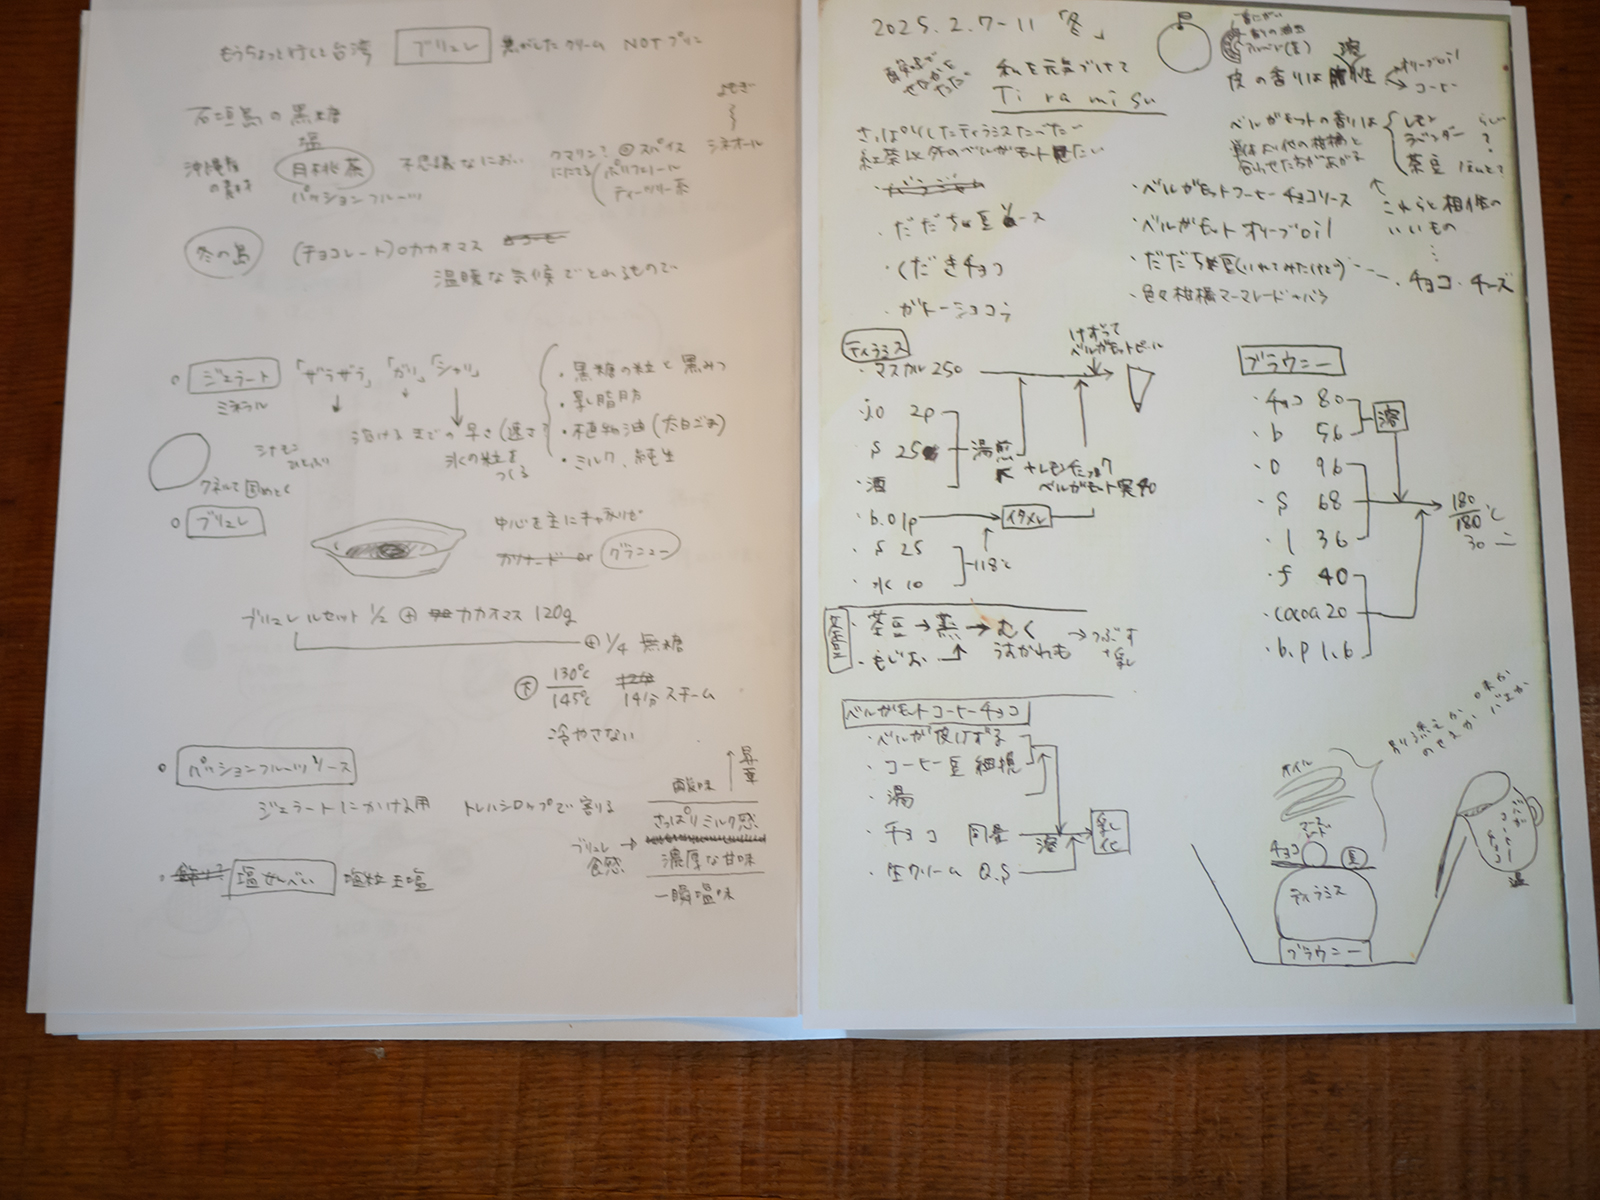 もうちょっと行くと台湾 ブリュレ 焦がしたクリーム NOT プリン
よもぎ
シネオール
石垣島の黒糖
塩
沖縄産の素材
月桃茶 不思議なにおい
クマリン? スパイス
ににてる ポリフェノール
ティーツリー茶
パッションフルーツ
冬の島 (チョコレート)○カカオマス
温暖な気候でとれるもので
ジェラート 「ザラザラ」「ガリ」「シャリ」
ミネラル
溶けるまでの早さ(遅さ?
氷の粒をつくる
・黒糖の粒と黒みつ
・乳脂肪
・植物油(太白ごま)
・ミルク、純生
シナモンひとふり
クネルで固めとく
ブリュレ
中心を主にキャラリゼ
カソナード or グラニュー
ブリュレ ルセット 1/2 + カカオマス 120g
+ 1/4 無糖
下 130℃
145℃ 14分 スチーム
冷やさない
パッションフルーツソース
ジェラートにかける用 トレハシロップで割る
昇華
酸味
さっぱりミルク感
ブリュレ食感 →
濃厚な甘味
一瞬塩味
塩せんべい 塩粒 玉塩
2025. 2. 7-11 「冬」
私を元気づけて
Ti ra mi su
さっぱりしたティラミスたべたい
紅茶以外のベルガモット見たい
・だだちゃ豆ソース
・くだきチョコ
・ガトーショコラ
皮の香りは脂溶性
オリーブoil
コーヒー
ベルガモットの香りは
単体より他の柑橘と
合わせた方があがる
レモン
ラベンダー ?
茶豆 ほんと?
これらと相性の
いいもの
・チョコ・チーズ
・ベルガモットコーヒーチョコソース
・ベルガモットオリーブoil
・だだちゃ豆(いれてみたけどう)
・色々柑橘マーマレード
ティラミス
・マスカル 250
けずって
ベルガモットピール
・j.o 2p
・S 25
・酒
湯煎
+レモンチェッロ?
ベルガモット実40
・b.o 1p
イタメレ
・S 25
・水 10
118℃
・茶豆 → 蒸 → むく
うすかわも
→ つぶす
+乳
・もじお
ブラウニー
・チョコ 80
・b 56
溶
・O 96
・S 68
・l 36
・f 40
・cocoa 20
・b.p 1.6
180
180℃
30
ベルガモットコーヒーチョコ
・ベルガ皮けずる
・コーヒー豆 細挽
・湯
・チョコ 同量
溶
乳化
・生クリーム Q.S
オイル
マーマレード
チョコ
豆
ティラミス
ブラウニー
ベルガコーヒーチョコ
温